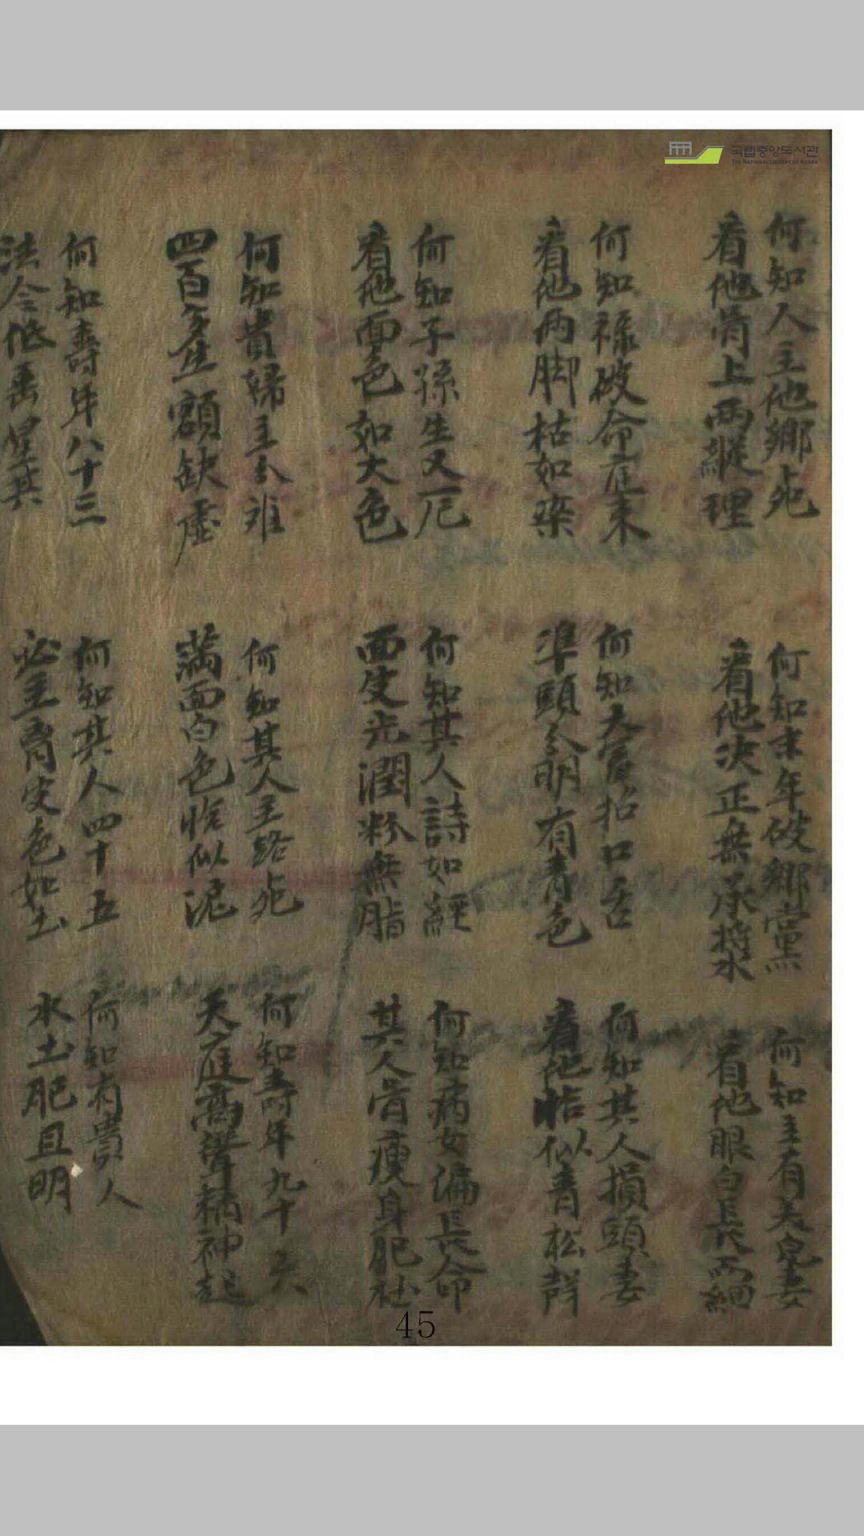 국립중앙도서관
THE NATIONAL LIBRARY OF KOREA
何知人主他鄉死
看他骨上兩縱理
何知末年破鄉黨
看他決正無承漿
何知主有美皃妻
看他眼白長而細
何知祿破命在末
看他兩脚枯如柴
何知大屋招口舌
準頭不明有青色
何知其人損頭妻
看他似青松
何知子孫生又厄
看他面色如大色
何知其人詩如經
面皮光潤粉無脂
何知病女偏長命
其人骨瘦身肥
何知貴婦主分难
四百多生額缺虛
何知其人主路死
滿面白色恰似泥
何知壽年九十六
天庭高聳精神起
何知壽年八十三
法令低垂
何知其人四十五
必主骨皮色如土
何知有貴人
水土肥且明
45